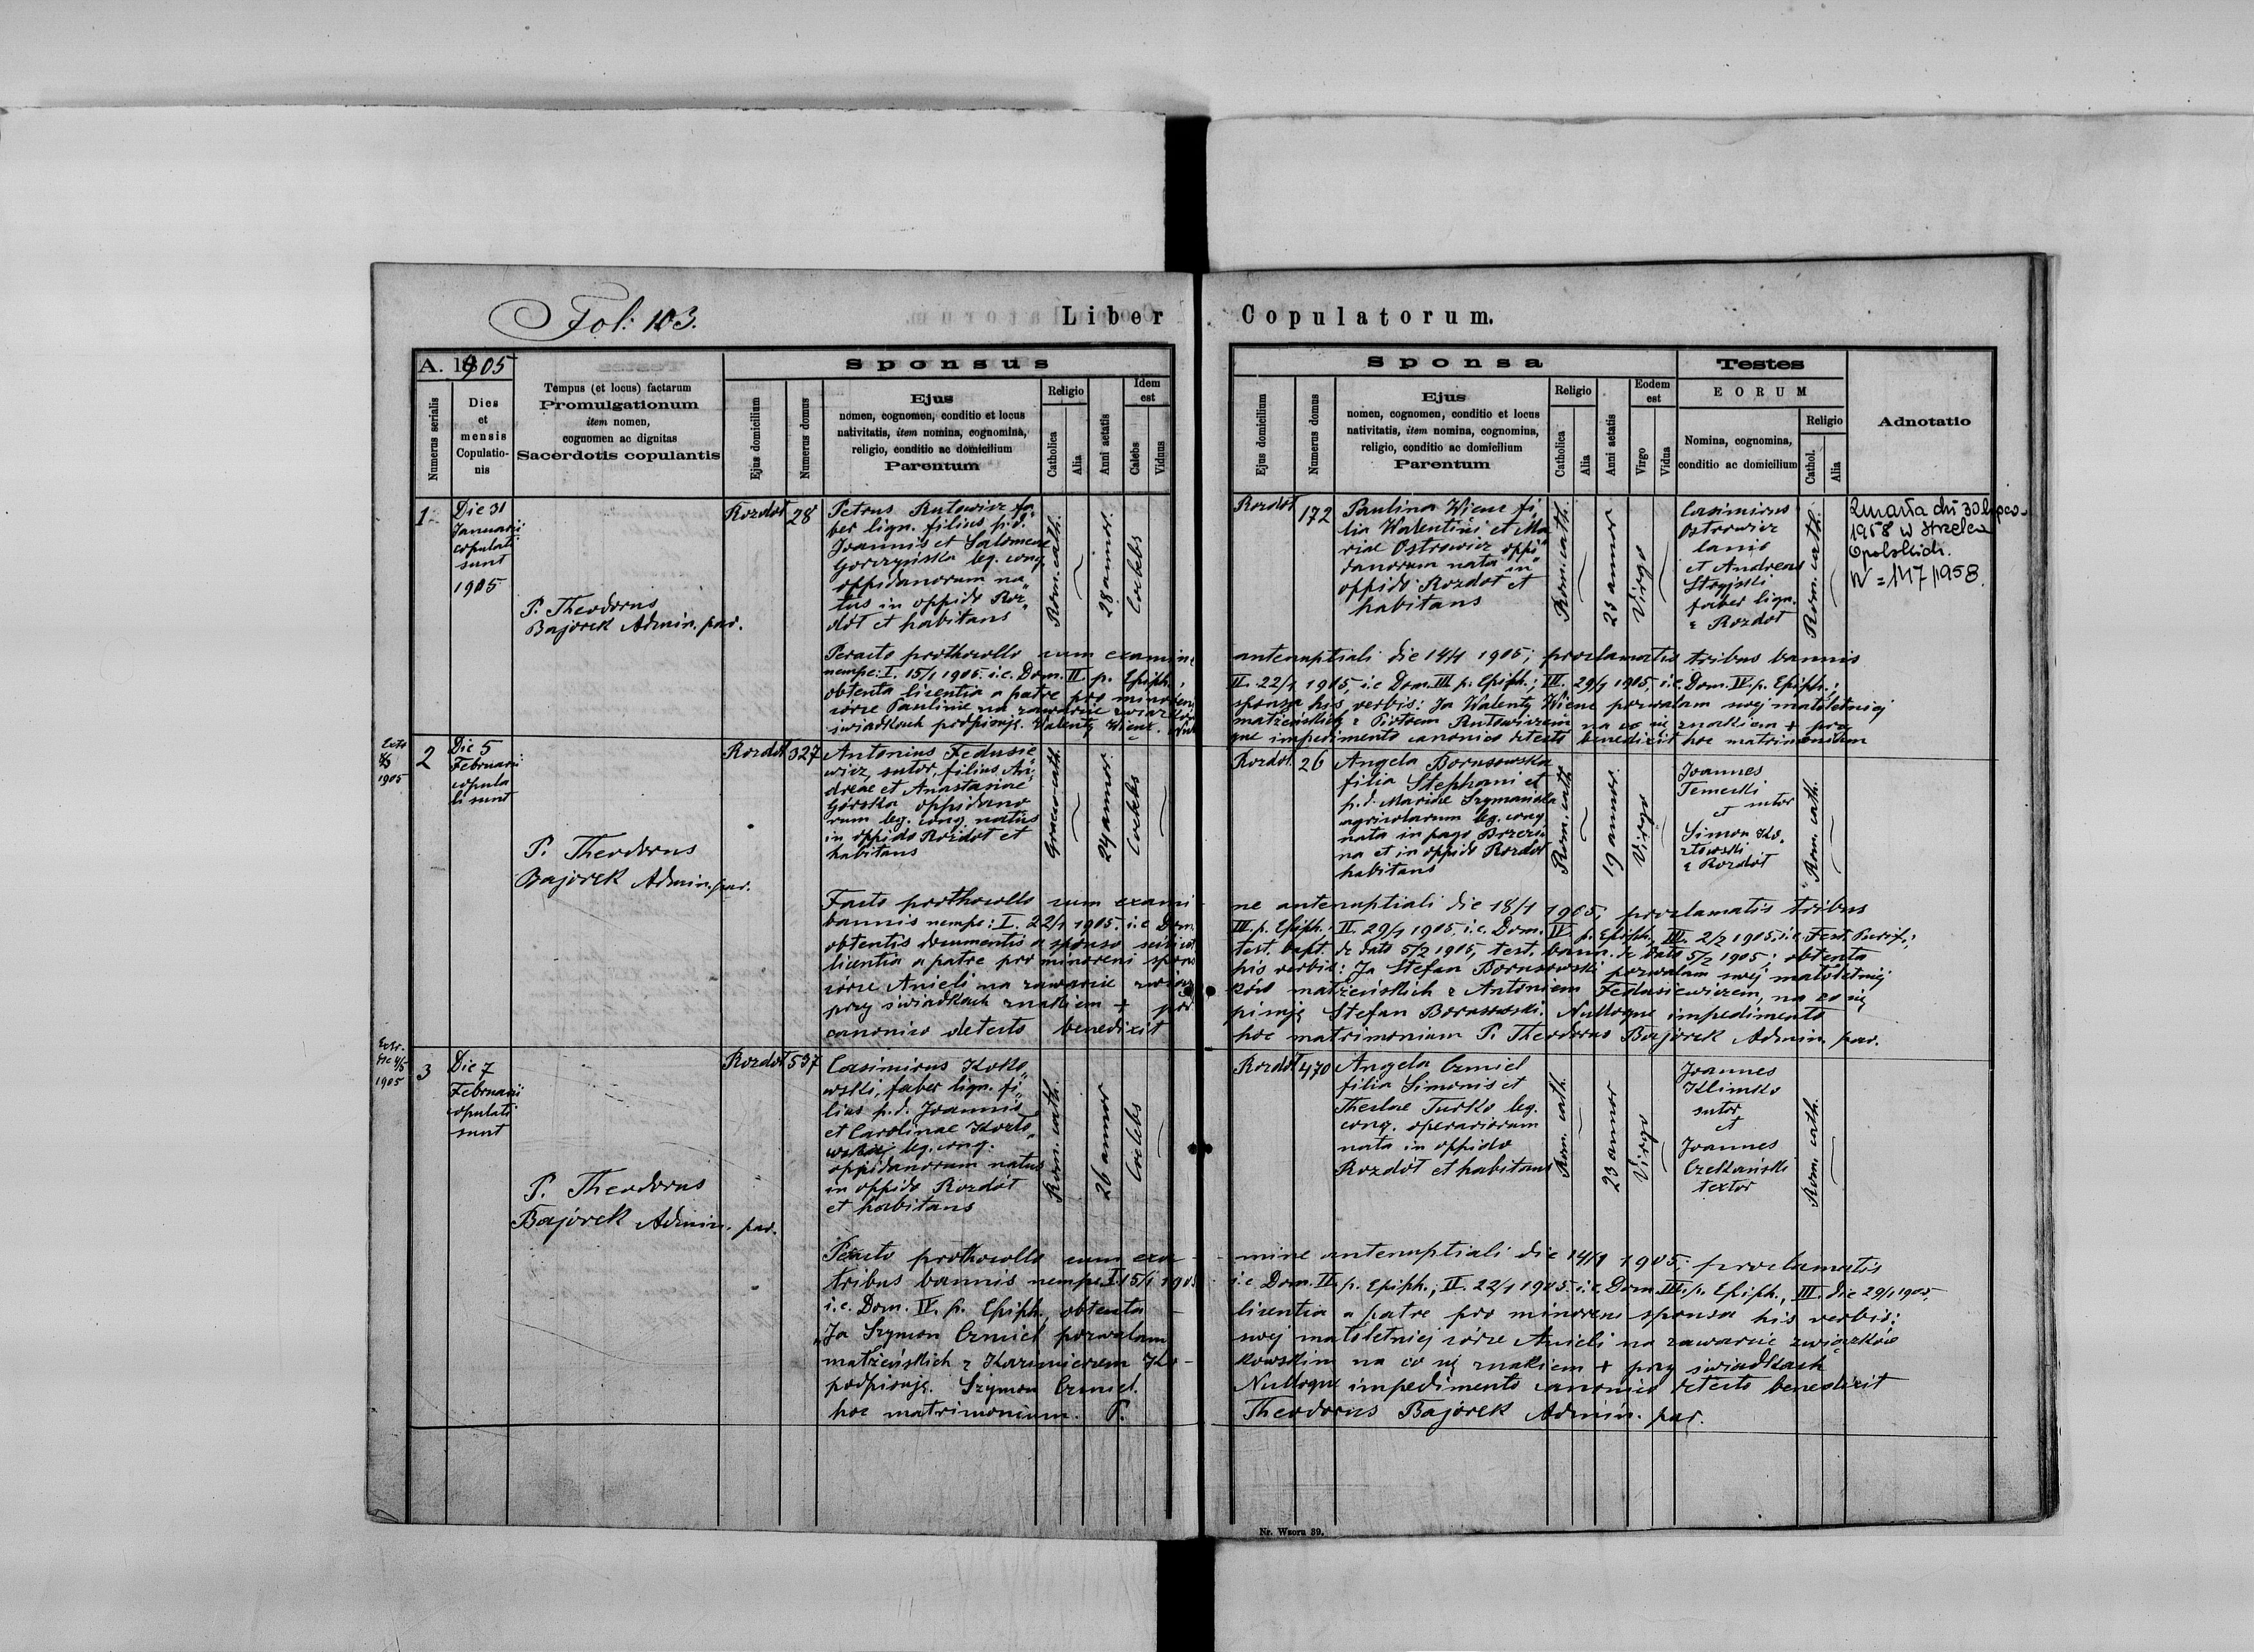 Fol: 103.
Liber Copulatorum.
A. 1905
Numerus serialis
Dies
et
mensis
Copulatio-
nis
Tempus (et locus) factarum
Promulgationum
item nomen,
cognomen ac dignitas
Sacerdotis copulantis
Sponsus
Ejus domicilium
Numerus domus
Ejus
nomen, cognomen, conditio et locus
nativitatis, item nomina, cognomina,
religio, conditio ac domicilium
Parentum
Religio
Catholica
Alia
Anni aetatis
Idem
est
Caelebs
Viduus
Sponsa
Ejus domicilium
Numerus domus
Ejus
nomen, cognomen, conditio et locus
nativitatis, item nomina, cognomina,
religio, conditio ac domicilium
Parentum
Religio
Catholica
Alia
Anni aetatis
Eodem
est
Virgo
Vidua
Testes
EORUM
Nomina, cognomina,
conditio ac domicilium
Religio
Cathol.
Alia
Adnotatio
1
Die 31
Januarii
copulati
sunt
1905
P. Theodorus
Bajorek Admin. par.
Rozdół
28
Petrus Rutowicz fa„
ber lign. filius p.d.
Joannis et Salomeae
Gorczyńska leg. conj.
oppidanorum na„
tus in oppido Roz„
dół et habitans
Rom. cath.
28 annor.
Coelebs
Rozdół
172
Paulina Wienc fi„
lia Valentini et Ma„
riae Ostrowicz oppi„
danorum nata in
oppido Rozdół et
habitans
Rom. cath.
23 annor
Virgo
Casimirus
Ostrowicz
lanio
et Andreas
Stryjski
faber lign.
z Rozdół
Rom. cath.
Zmarła dn 30 lipca
1958 w Strzelca
Opolskich.
N = 147/1958.
Peracto prothocollo cum examine antenuptiali die 14/1 1905; proclamatis tribus bannis
nempe: I. 15/1 1905. i.e. Dom. II p. Epiph., II. 22/1 1905, i.e Dom. III p. Epiph.; III. 29/1 1905, i.e. Dom. IV p. Epiph.;
obtenta licentia a patre pro minoreni sponsa his verbis: Ja Walenty Wienc pozwalam swej małoletniej
córce Paulinie na zawarcie związków małżeńskich z Piotrem Rutowiczem na co się znakiem + przy
świadkach podpisuję. Walenty Wienc. Nullo que impedimento canonico detecto benedixit hoc matrimonium
Extr
1905
2
Die 5
Februarii
copula
ti sunt
P. Theodorus
Bajorek Admin. par.
Rozdół
327
Antonius Fedusie„
wicz, sutor, filius An„
dreae et Anastasiae
Górska oppidano„
rum leg. conj. natus
in oppido Rozdół et
habitans
Graeco-cath.
24 annor.
Coelebs
Rozdół
26
Angela Borusowska
filia Stephani et
p.d. Mariae Szymańska
agricolarum leg. conj.
nata in pago Brzezi„
na et in oppido Rozdół
habitans
Rom. cath
19 annor.
Virgo
Joannes
Temecki
sutor
et
Simon Ko„
złowski
z Rozdół
Rom. cath.
Facto prothocollo cum exami ne antenuptiali die 18/1 1905; proclamatis tribus
bannis nempe: I. 22/1 1905. i.e Dom. III. p. Epiph.; II. 29/1 1905, i.e. Dom. IV. p. Epiph., III. 2/2 1905. i.e. Fest. Purif.;
obtentis documentis a sponso scilicet test. bapt. de dato 5/2 1905, test. bann. de dato 5/2 1905; obtenta
licentia a patre pro minoreni sponsa his verbis: Ja Stefan Borusowski pozwalam swej małoletniej
córce Anieli na zawarcie związ ków małżeńskich z Antoniem Fedusiewiczem, na co się
przy świadkach znakiem + pod pisuję Stefan Borusowski. Nulloque impedimento
canonico detecto benedixit hoc matrimonium P. Theodorus Bajorek Admin. par.
Extr.
1905
3
Die 7
Februarii
copulati
sunt
P. Theodorus
Bajorek Admin. par.
Rozdół
537
Casimirus Koko„
wski, faber lign. fi„
lius p.d. Joannis
et Carolinae Kozło„
wskiej leg. conj.
oppidanorum natus
in oppido Rozdół
et habitans
Rom. cath.
26 annor
Coelebs
Rozdół
470
Angela Czmiel
filia Simonis et
Theclae Turko leg.
conj. operariorum
nata in oppido
Rozdół et habitans
Rom. cath.
23 annor
Virgo
Joannes
Klimko
sutor
et
Joannes
Czekański
textor
Rom. cath.
Peracto prothocollo cum exa- mine antenuptiali die 14/1 1905; proclamatis
tribus bannis nempe: I 15/1 1905 i.e Dom. II. p. Epiph.; II. 22/1 1905. i.e Dom. III. p. Epiph., III. die 29/1 1905.
i.e. Dom. IV. p. Epiph., obtenta licentia a patre pro minoreni sponsa his verbis:
„Ja Szymon Czmiel pozwalam swej małoletniej córce Anieli na zawarcie związków
małżeńskich z Kazimierzem Ko- kowskim na co się znakiem + przy świadkach
podpisuję. Szymon Czmiel. Nulloque impedimento canonico detecto benedixit
hoc matrimonium. P. Theodorus Bajorek Admin. par.
Nr. Wzoru 39.